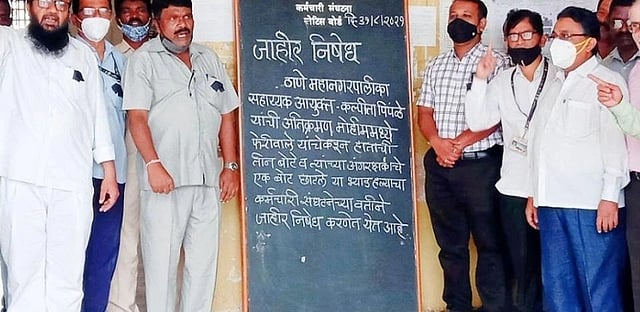 कर्मचारी संघटना
नोटिस बोर्ड दि ३१/८/२०२१
जाहीर निषेध
ठाणे महानगरपालीका
सहाय्यक आयुक्त - कल्पीता पिंपळे
यांची अतिक्रमण मोहीममध्ये
फेरीवाले यांचेकडून हाताची
तीन बोटे व त्यांच्या अंगरक्षकाचे
एक बोट छाटले या भ्याड हल्ल्याचा
कर्मचारी-संघटनेच्यावतीने
जाहीर निषेध करणेत येत आहे.